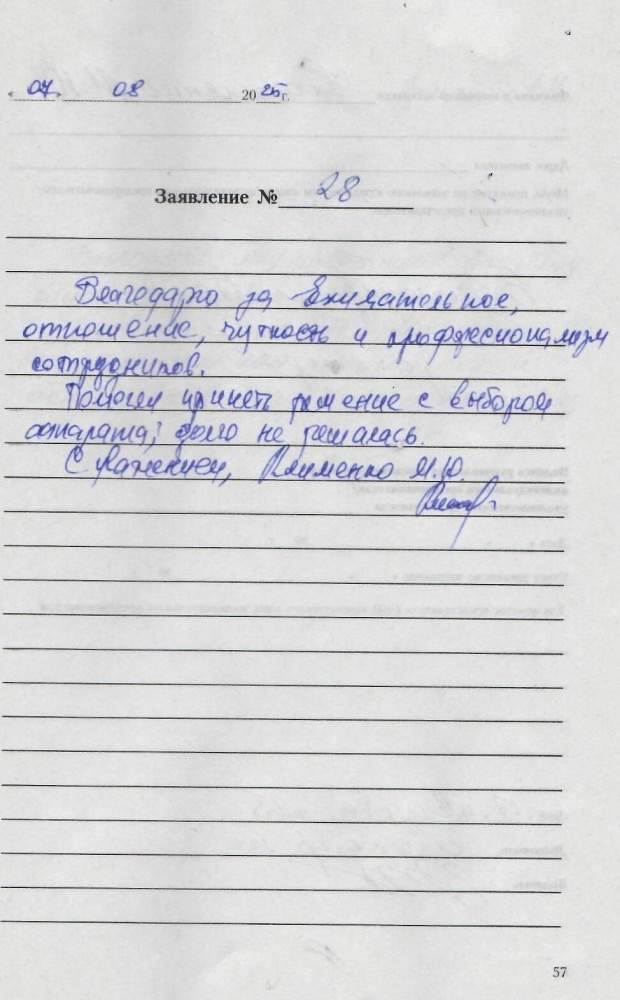 07 08 2025 г.
Заявление № 28
Благодарю за внимательное,
отношение, чуткость и профессионализм
сотрудников.
Помогли принять решение с выбором
аппарата, долго не решалась.
С уважением, Клименко М.Ю.
57